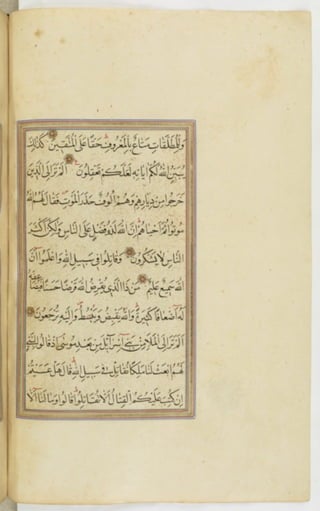 وللمطلقات متاع بالمعروف حقا على المتقين كذلك
يبين الله لكم اياته لعلكم تعقلون الم تر الى الذين
خرجوا من ديارهم وهم الوف حذر الموت فقال لهم الله
موتوا ثم احياهم ان الله لذو فضل على الناس ولكن اكثر
الناس لا يشكرون وقاتلوا في سبيل الله واعلموا ان
الله سميع عليم من ذا الذي يقرض الله قرضا حسنا فيضاعفه
له اضعافا كثيرة والله يقبض ويبصط واليه ترجعون
الم تر الى الملا من بني اسرائيل من بعد موسى اذ قالوا لنبي
لهم ابعث لنا ملكا نقاتل في سبيل الله قال هل عسيتم
ان كتب عليكم القتال الا تقاتلوا قالوا وما لنا الا